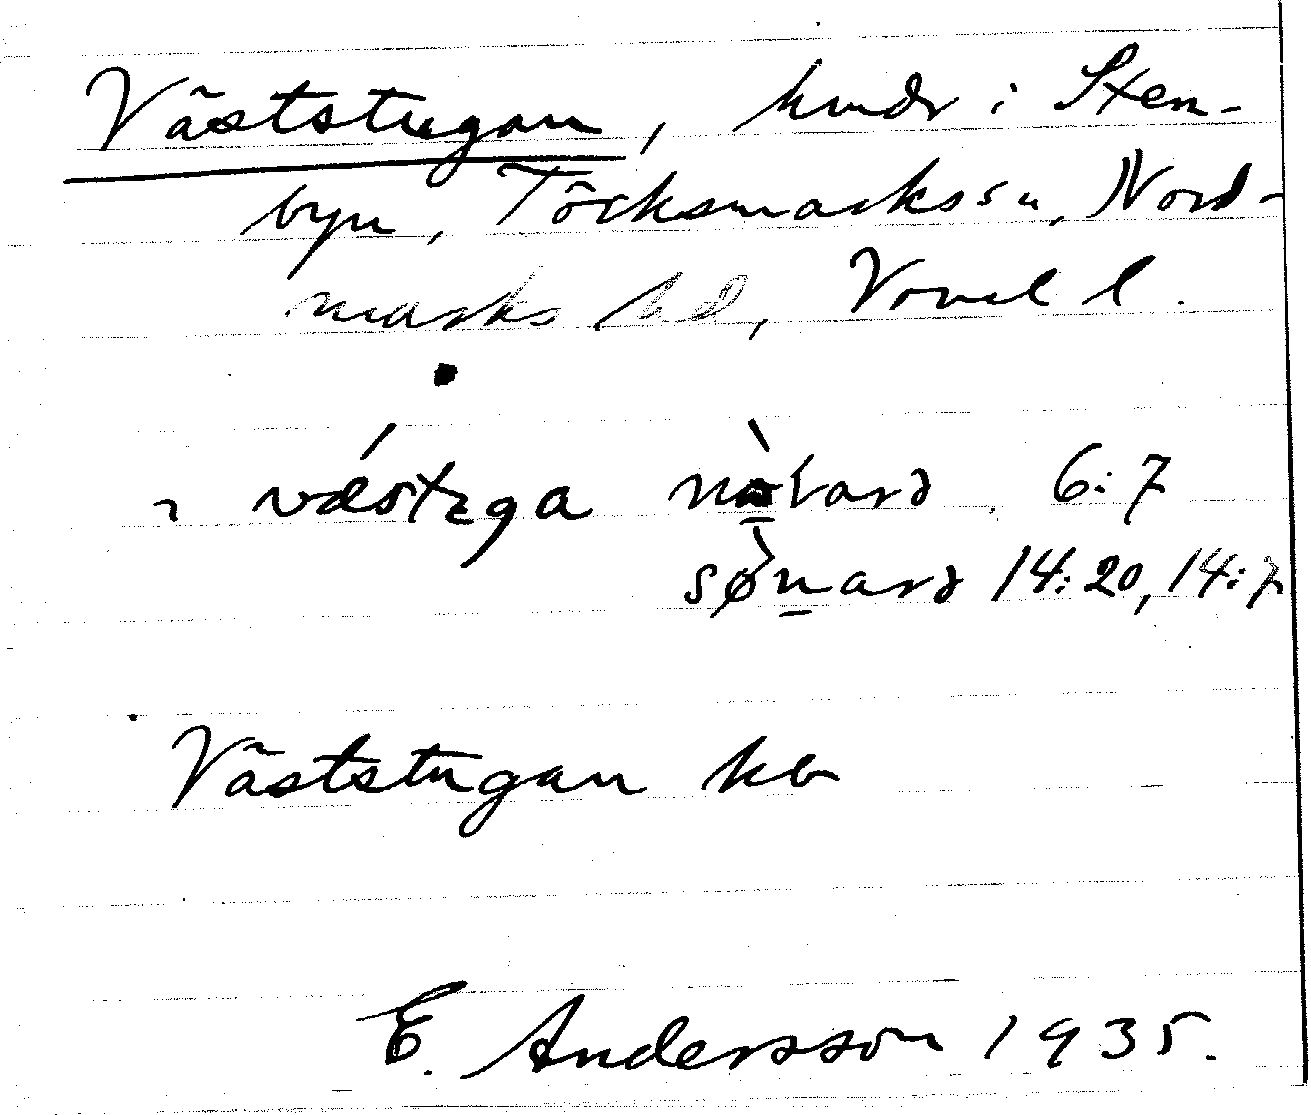 Väststugan, hmdr i Sten-
byn, Töcksmarks sn, Nord-
marks hd, Värml l.
vǽstega 6:7
sø̀nard 14:20, 14:7
Väststugan kb
E. Andersson 1935.